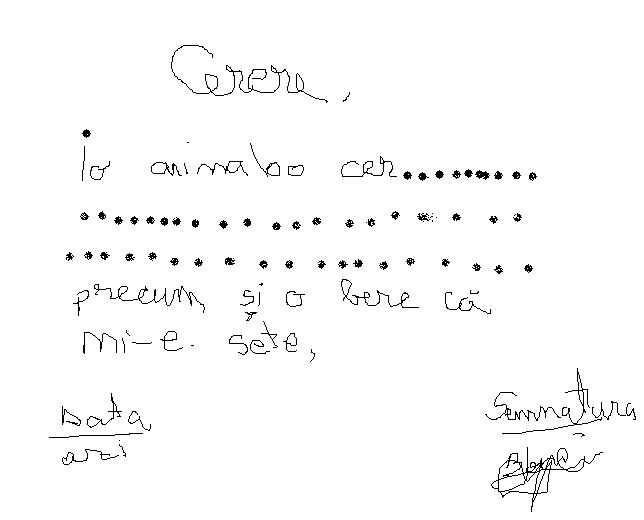 Cerere,
Io animaloo cer..................
..........................
........................
precum și o bere că
mi-e sete,
Data
azi
Semnatura